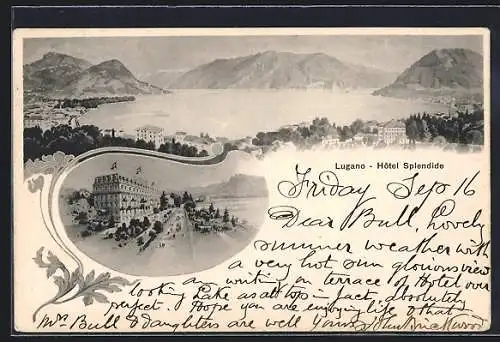 Lugano - Hôtel Splendide
Friday Sep 16
Dear Bull, Lovely
summer weather with
a very hot sun glorious view
am writing on terrace of Hotel over
looking Lake as all top in fact, absolutely
perfect. Hope you are enjoying life & that
Mrs Bull & daughters are well Yours John